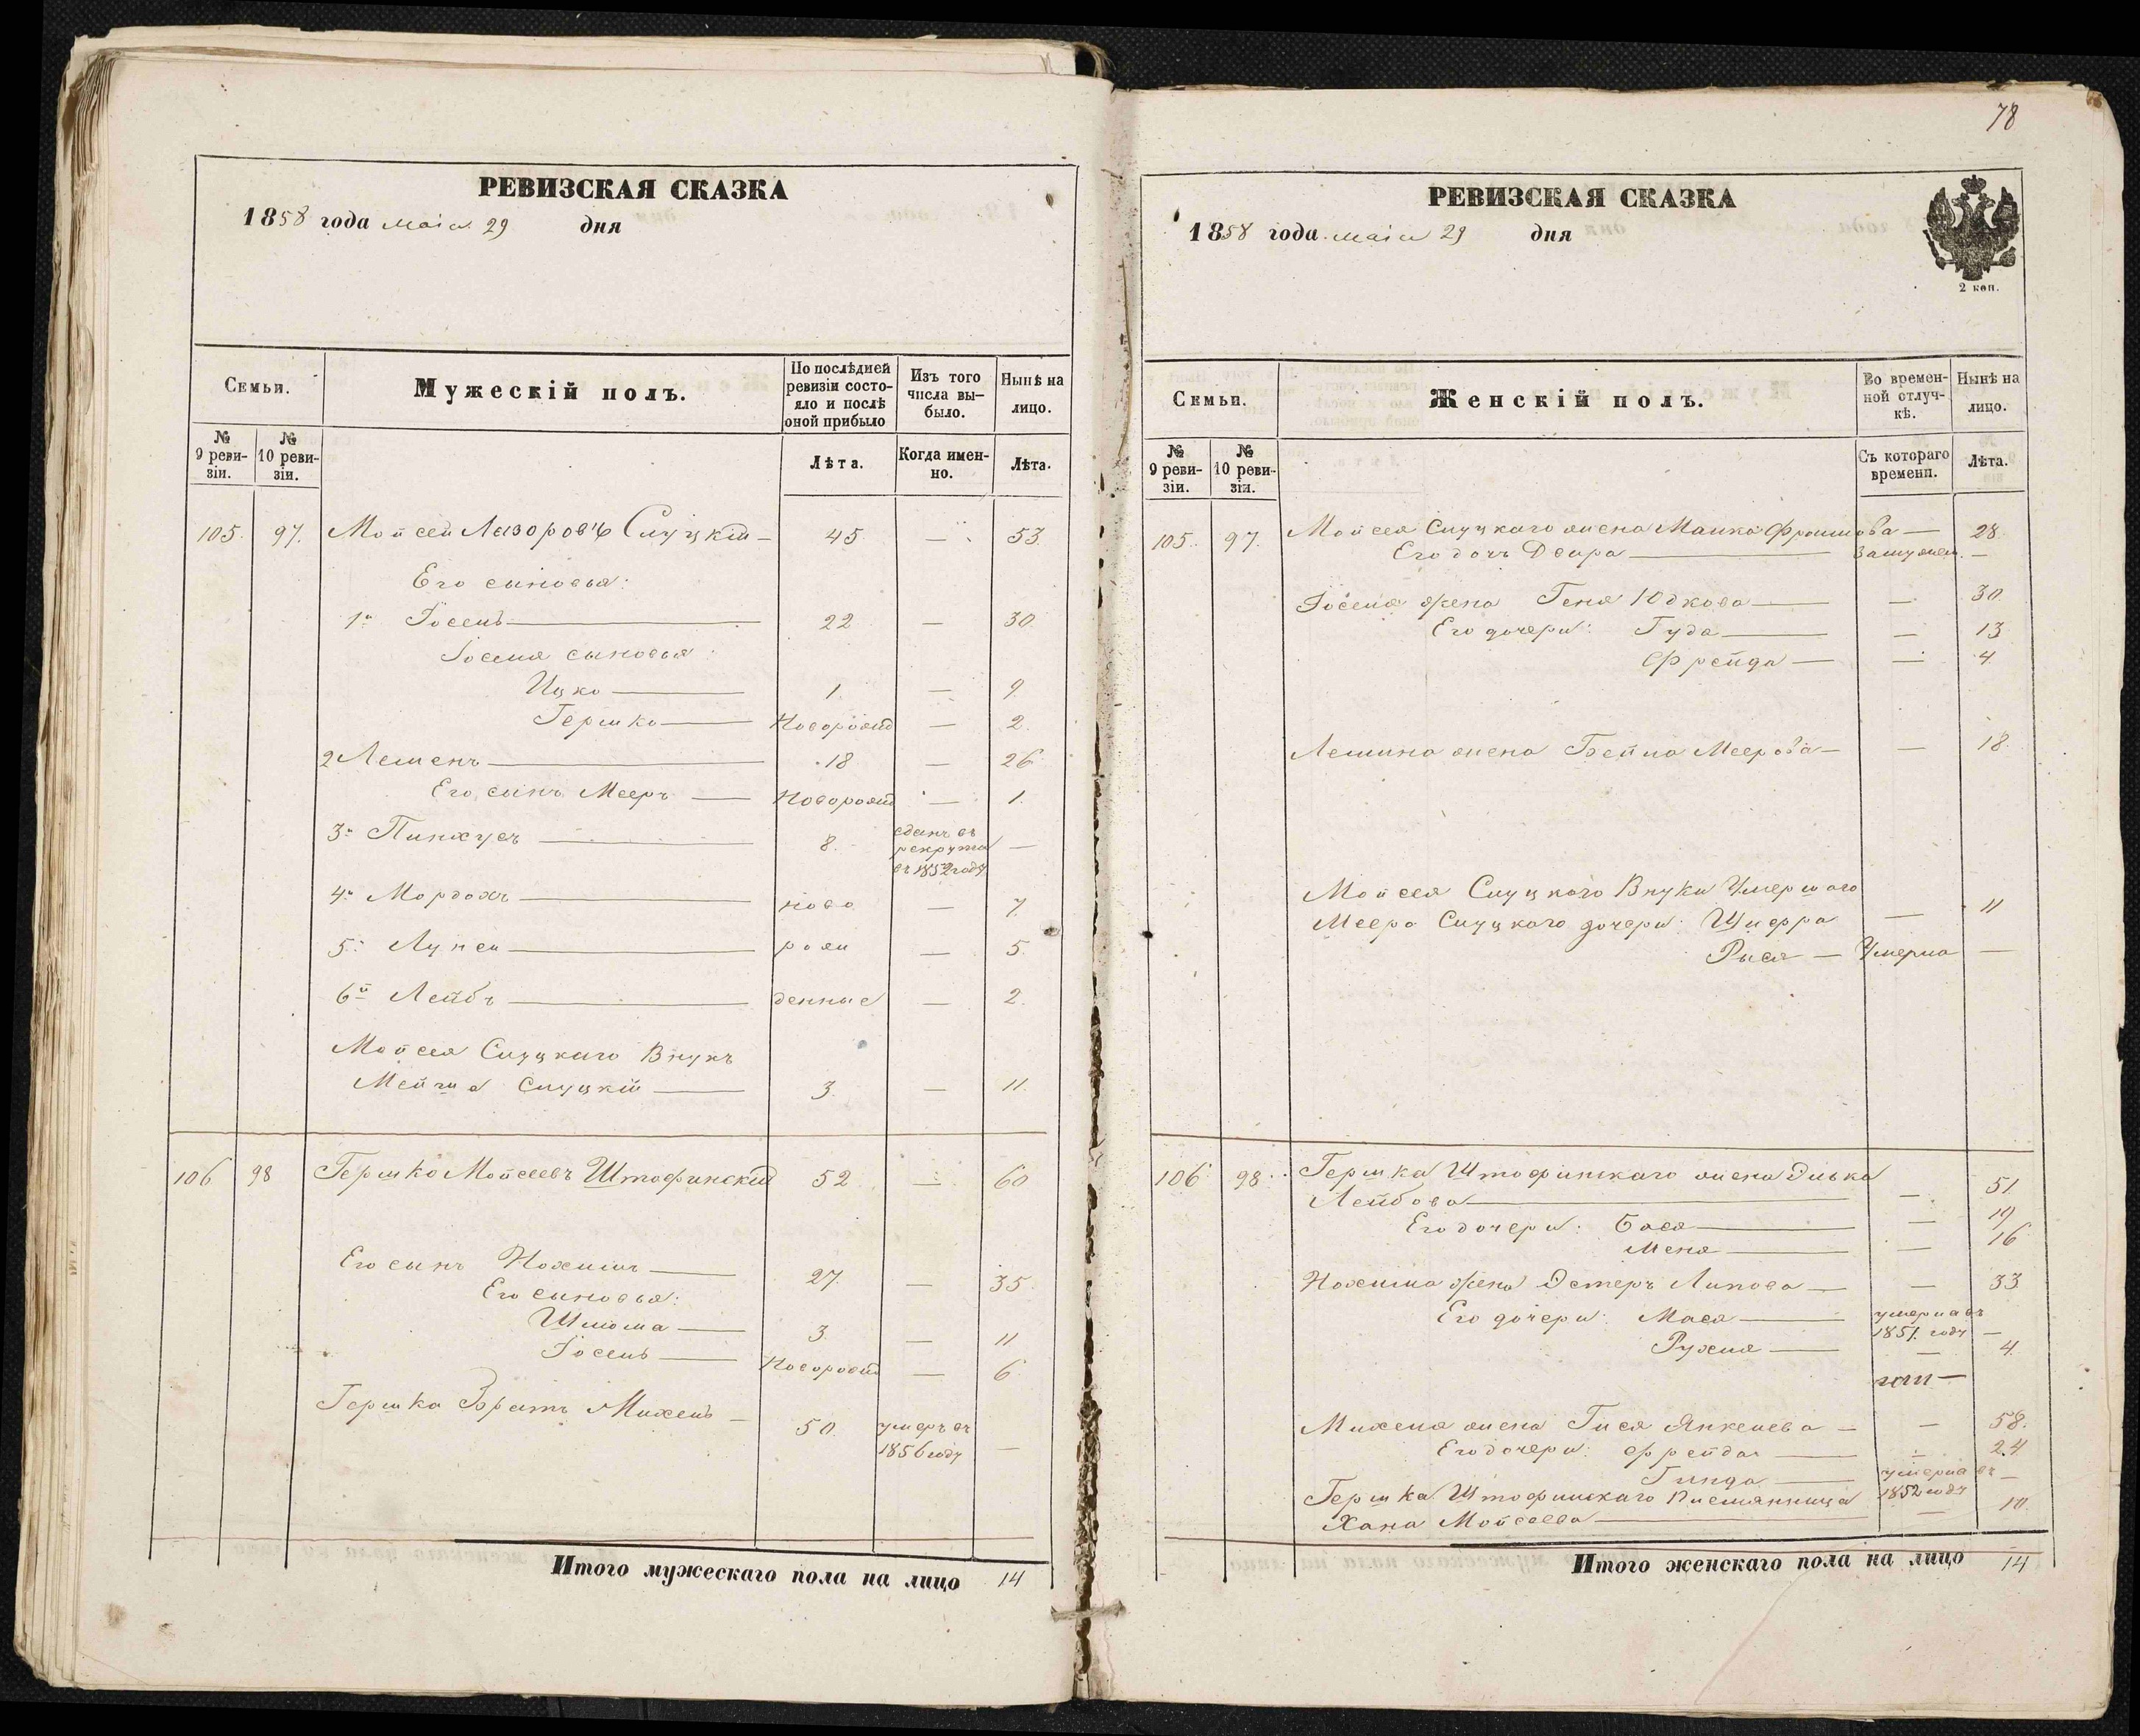 РЕВИЗСКАЯ СКАЗКА
1858 года маiя 29 дня
Семьи.
Мужескiй полъ.
По послѣдней ревизiи состояло и послѣ оной прибыло
Изъ того числа выбыло.
Нынѣ на лицо.
№ 9 ревизiи.
№ 10 ревизiи.
Лѣта.
Когда именно.
Лѣта.
105. 97. Мойсей Лазоровъ Слуцкiй — 45 — 53.
Его сыновья:
1й Iосель — 22 — 30.
Iоселя сыновья:
Ицко — 1. — 9.
Гершко — Новорожд — 2.
2 Лешенъ — 18 — 26
Его сынъ Мееръ — Новорожд — 1.
3й Пинхусъ — 8. сданъ въ рекруты въ 1852 году —
4й Мордохъ — ново — 7.
5й — рож — 5.
6й Лейбъ — денные — 2.
Мойсея Слуцкаго Внукъ
Слуцкiй — 3. — 11.
106 98 Гершко Мойсеевъ Штофинскiй 52 — 60
Его сынъ Нохимъ — 27. — 35.
Его сыновья:
Шлiома — 3. — 11
Iосель — Новорожд — 6
Гершка Братъ Михель — 50. умеръ въ 1856 году —
Итого мужескаго пола на лицо 14
78
РЕВИЗСКАЯ СКАЗКА
1858 года маiя 29 дня
2 коп.
Семьи.
Женскiй полъ.
Во временной отлучкѣ.
Нынѣ на лицо.
№ 9 ревизiи.
№ 10 ревизiи.
Съ котораго времени.
Лѣта.
105. 97. Мойсея Слуцкаго жена Малка Фроимова — 28.
Его дочь Двира — Замужем. —
Iоселя жена Геня Юдкова — — 30.
Его дочери: Гуда — — 13
Фрейда — — 4
Лешина жена Бейла Меерова — — 18.
Мойсея Слуцкаго Внуки Умершаго
Меера Слуцкаго дочери: — 11
Рыся — Умерла —
106 98. Гершка Штофинскаго жена Элька
Лейбова — — 51.
Его дочери: Бася — — 19
Меня — — 16
Нохима жена Эстеръ Липова — — 33
Его дочери: Мася — умерла въ 1851. году —
Рухля — — 4.
Михеля жена Гися Янкелева — — 58.
Его дочери: Фрейда — — 24
Гинда — умерла въ 1852 году —
Гершка Штофинскаго Племянница
Хана Мойсеева — — 10.
Итого женскаго пола на лицо 14